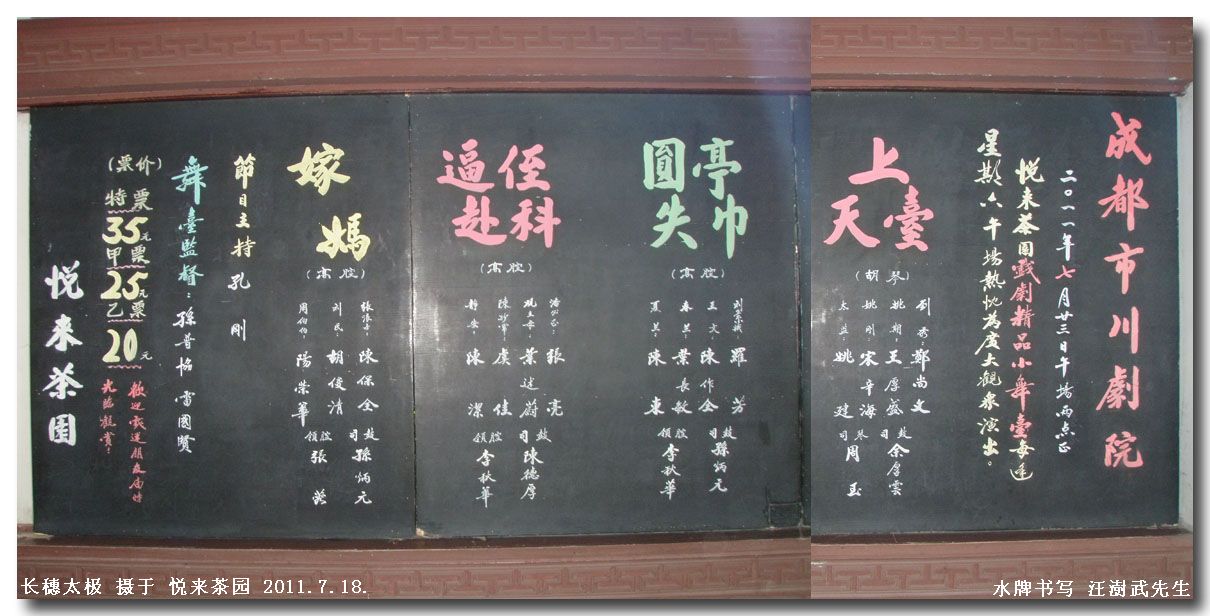 成都市川劇院
二〇一一年七月廿三日午場两点正
悦来茶園戲劇精品小舞臺每逢
星期六午場熱忱為廣大觀衆演出。
上天臺
(胡琴)
劉秀：鄭尚文
姚期：王厚盛
姚剛：宋幸海
太監：姚建
鼓司 余厚雲
琴司 周玉
亭圓巾失
(高腔)
羅芳
王文：陳作全
春蘭：葉長敏
夏蘭：陳東
鼓司 孫炳元
領腔 李秋華
侄逼科赴
(高腔)
潘必正：張亮
觀主：葉述蔚
陳妙常：虞佳
靜安：陳潔
鼓司 陳德厚
領腔 李秋華
嫁媽
(高腔)
陳保全
刘氏：胡俊清
周伯伯：陽榮華
鼓司 孫炳元
領腔 張
節目主持 孔剛
舞臺監督：孫普協 雷國賢
(票价)
特票
35元
甲票
25元
乙票
20元
歡迎
光臨觀賞！
悦来茶園
长穗太极 摄于 悦来茶园 2011.7.18.
水牌书写 汪澍武先生